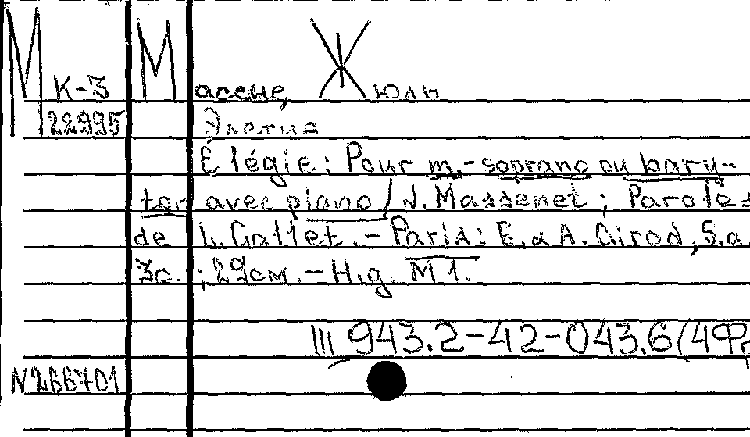 М К-3 Массне, Жюль
22995 Элегия
Élégie: Pour m.-soprano ou bary-
ton avec piano / J. Massenet ; Paroles
de L. Gallet. – Paris: E. & A. Girod, S.a.
3с. ; 29см. – H.g. М 1.
III 943.2-42-043.6(4Фр
N266701